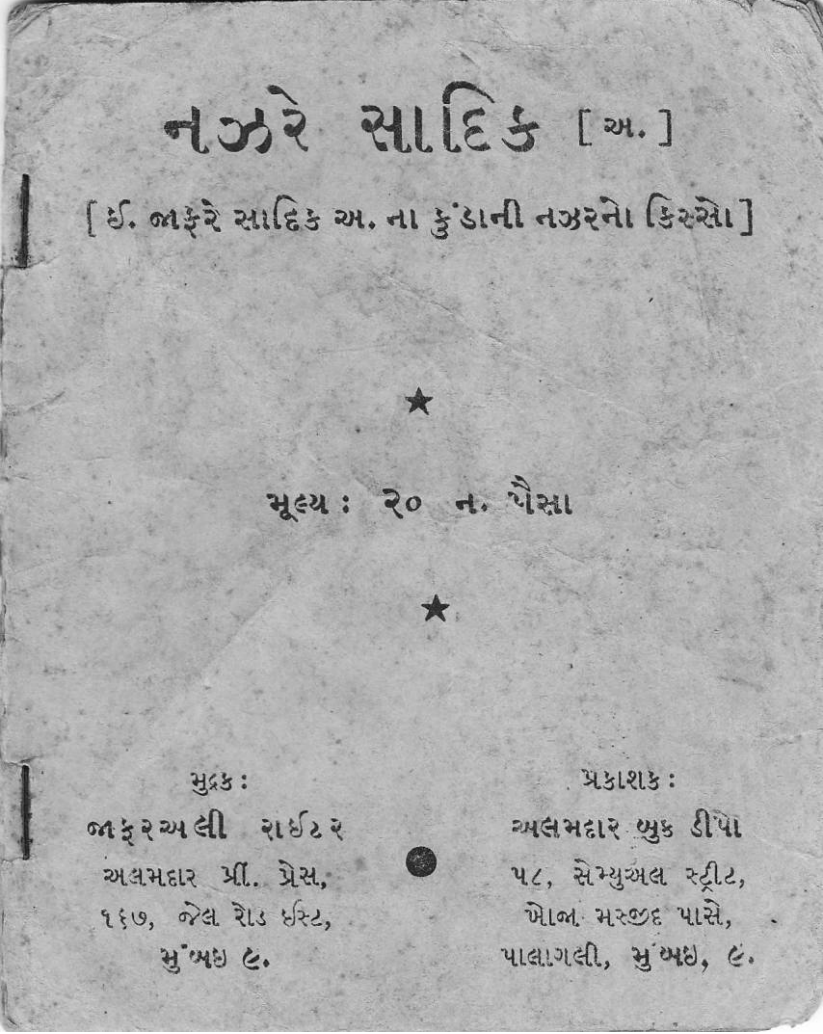 નઝરે સાદિક [ અ. ]
[ ઈ. જાફરે સાદિક અ. ના કુંડાની નઝરનો કિસ્સો ]
મૂલ્ય : ૨૦ ન. પૈસા
મુદ્રક :
જાફરઅલી રાઈટર
અલમદાર પ્રીં. પ્રેસ,
૧૬૭, જેલ રોડ ઈસ્ટ,
મુંબઇ ૯.
પ્રકાશક :
અલમદાર બુક ડીપો
૫૮, સેમ્યુઅલ સ્ટ્રીટ,
ખોજા મસ્જીદ પાસે,
પાલાગલી, મુંબઇ, ૯.